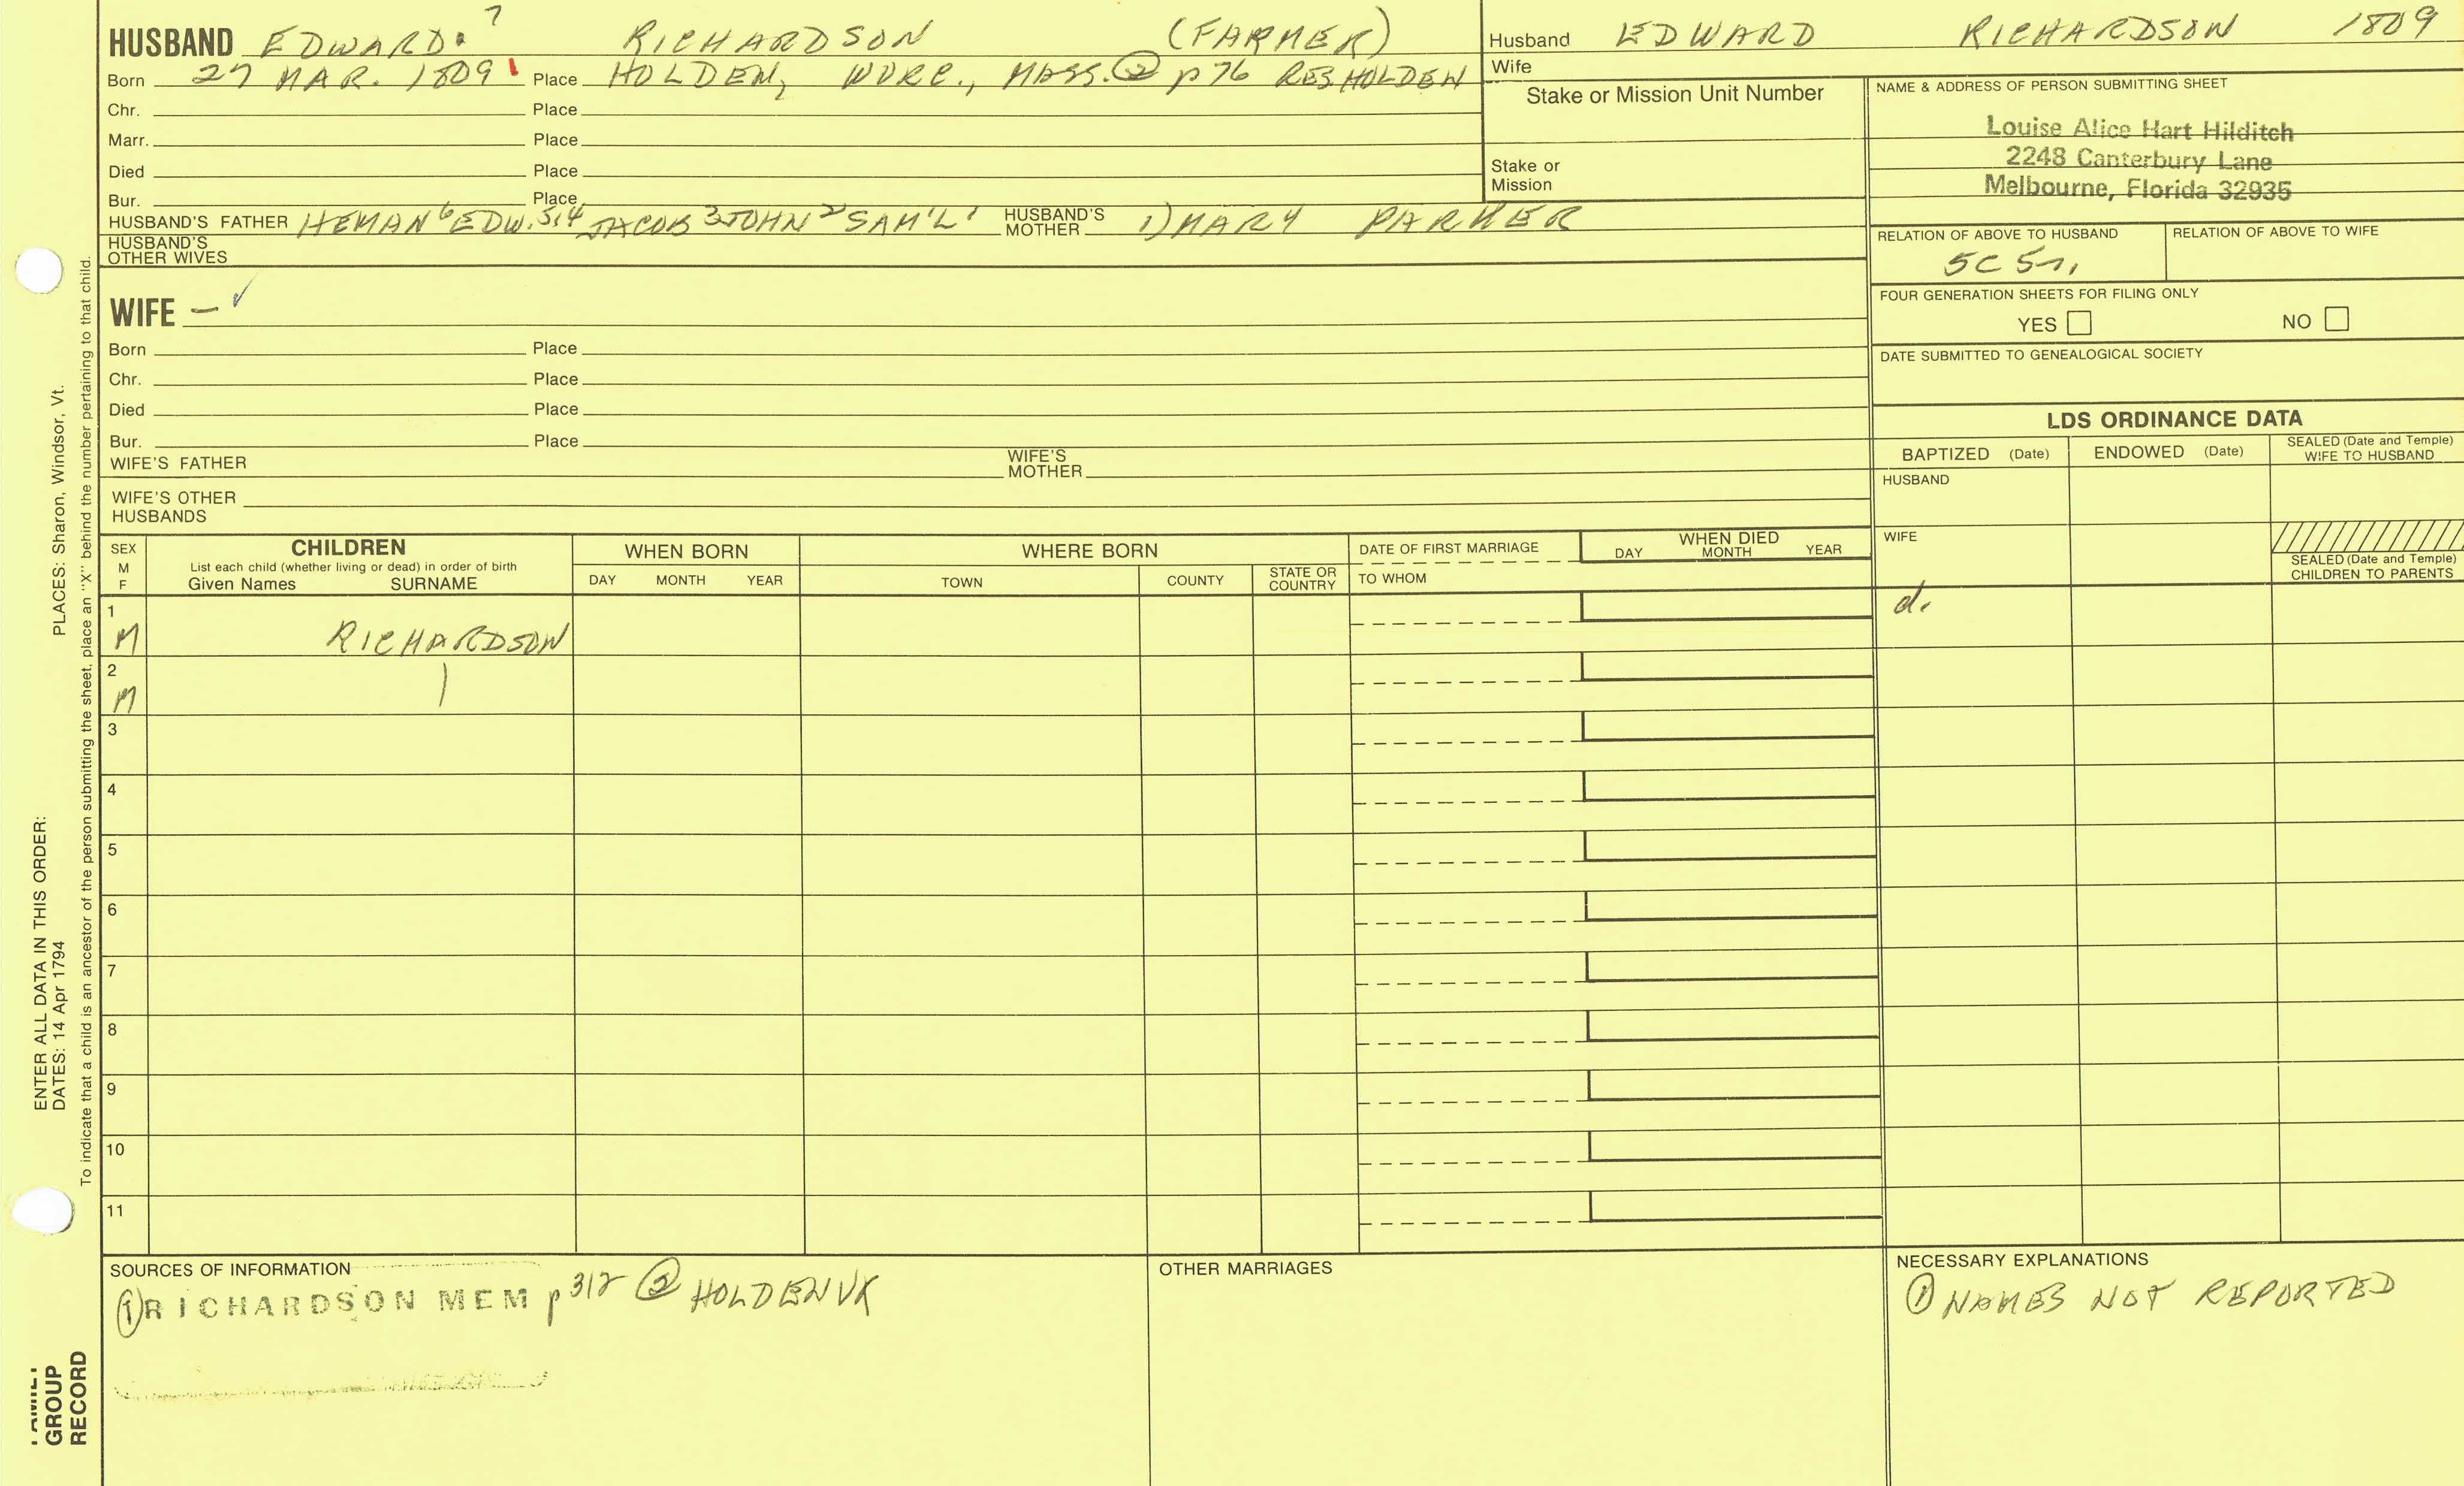 HUSBAND EDWARD. 7 RICHARDSON (FARMER)
Born 27 MAR. 1809 Place HOLDEN, WORC., MASS. ② p 76 RES HOLDEN
Chr. Place
Marr. Place
Died Place
Bur. Place
HUSBAND'S FATHER HEMAN 6 EDW. 5,4 JACOB 3 JOHN 2 SAM'L 1 HUSBAND'S MOTHER 1) MARY PARKER
HUSBAND'S OTHER WIVES
Husband EDWARD RICHARDSON 1809
Wife
Stake or Mission Unit Number
Stake or Mission
NAME & ADDRESS OF PERSON SUBMITTING SHEET
Louise Alice Hart Hilditch
2248 Canterbury Lane
Melbourne, Florida 32935
RELATION OF ABOVE TO HUSBAND RELATION OF ABOVE TO WIFE
5C 5r.
FOUR GENERATION SHEETS FOR FILING ONLY
YES NO
DATE SUBMITTED TO GENEALOGICAL SOCIETY
WIFE – ✓
Born Place
Chr. Place
Died Place
Bur. Place
WIFE'S FATHER WIFE'S MOTHER
WIFE'S OTHER HUSBANDS
LDS ORDINANCE DATA
BAPTIZED (Date) ENDOWED (Date) SEALED (Date and Temple) WIFE TO HUSBAND
HUSBAND
WIFE
SEALED (Date and Temple) CHILDREN TO PARENTS
SEX M F
CHILDREN
List each child (whether living or dead) in order of birth
Given Names SURNAME
WHEN BORN
DAY MONTH YEAR
WHERE BORN
TOWN COUNTY STATE OR COUNTRY
DATE OF FIRST MARRIAGE
TO WHOM
WHEN DIED
DAY MONTH YEAR
1 M RICHARDSON d.
2 M
3
4
5
6
7
8
9
10
11
SOURCES OF INFORMATION
① RICHARDSON MEM p 312 ② HOLDEN VR
OTHER MARRIAGES
NECESSARY EXPLANATIONS
① NAMES NOT REPORTED
ENTER ALL DATA IN THIS ORDER:
DATES: 14 Apr 1794 PLACES: Sharon, Windsor, Vt.
To indicate that a child is an ancestor of the person submitting the sheet, place an "X" behind the number pertaining to that child.
FAMILY
GROUP
RECORD